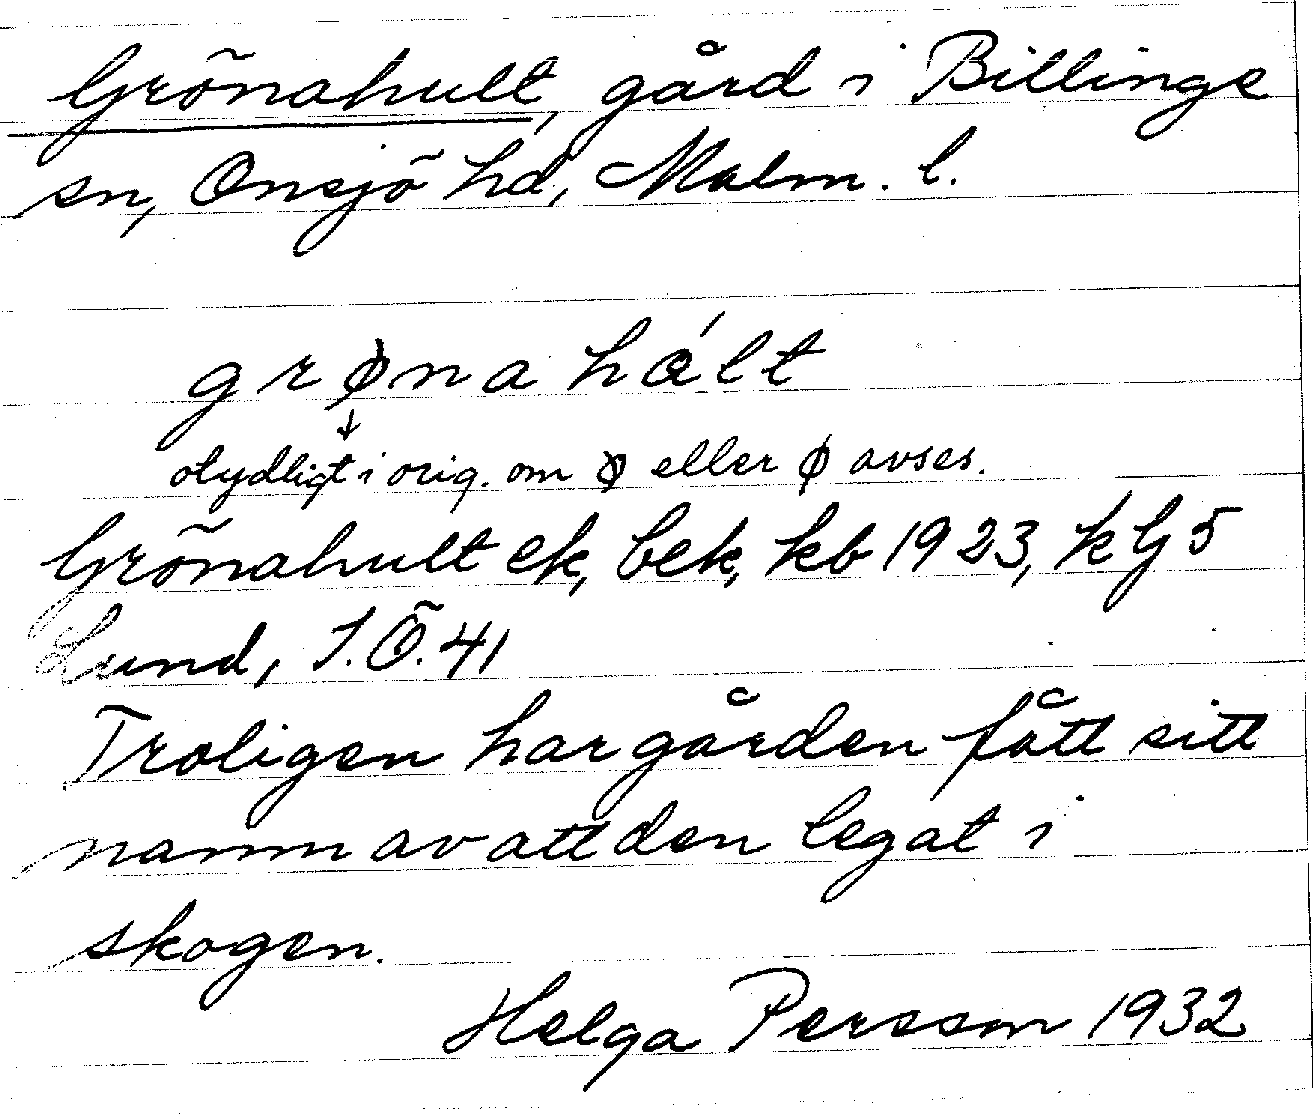 Grönahult, gård i Billinge
sn, Onsjö hd, Malm. l.
grøna hált
↓
otydligt i orig. om ꝍ eller ø avses.
Grönahult ek, bek, kb 1923, k G 5
Lund, I.Ö.41
Troligen har gården fått sitt
namn av att den legat i
skogen.
Helga Persson 1932